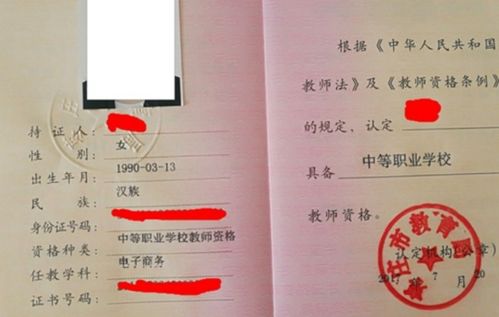 持 证 人：
性 别： 女
出生年月： 1990-03-13
民 族： 汉族
身份证号码：
资格种类： 中等职业学校教师资格
任教学科： 电子商务
证书号码：
根据《中华人民共和国
教师法》及《教师资格条例》
的规定，认定
具备 中等职业学校
教师资格。
市教育
认定机构（公章）
2017 年 7 月 20